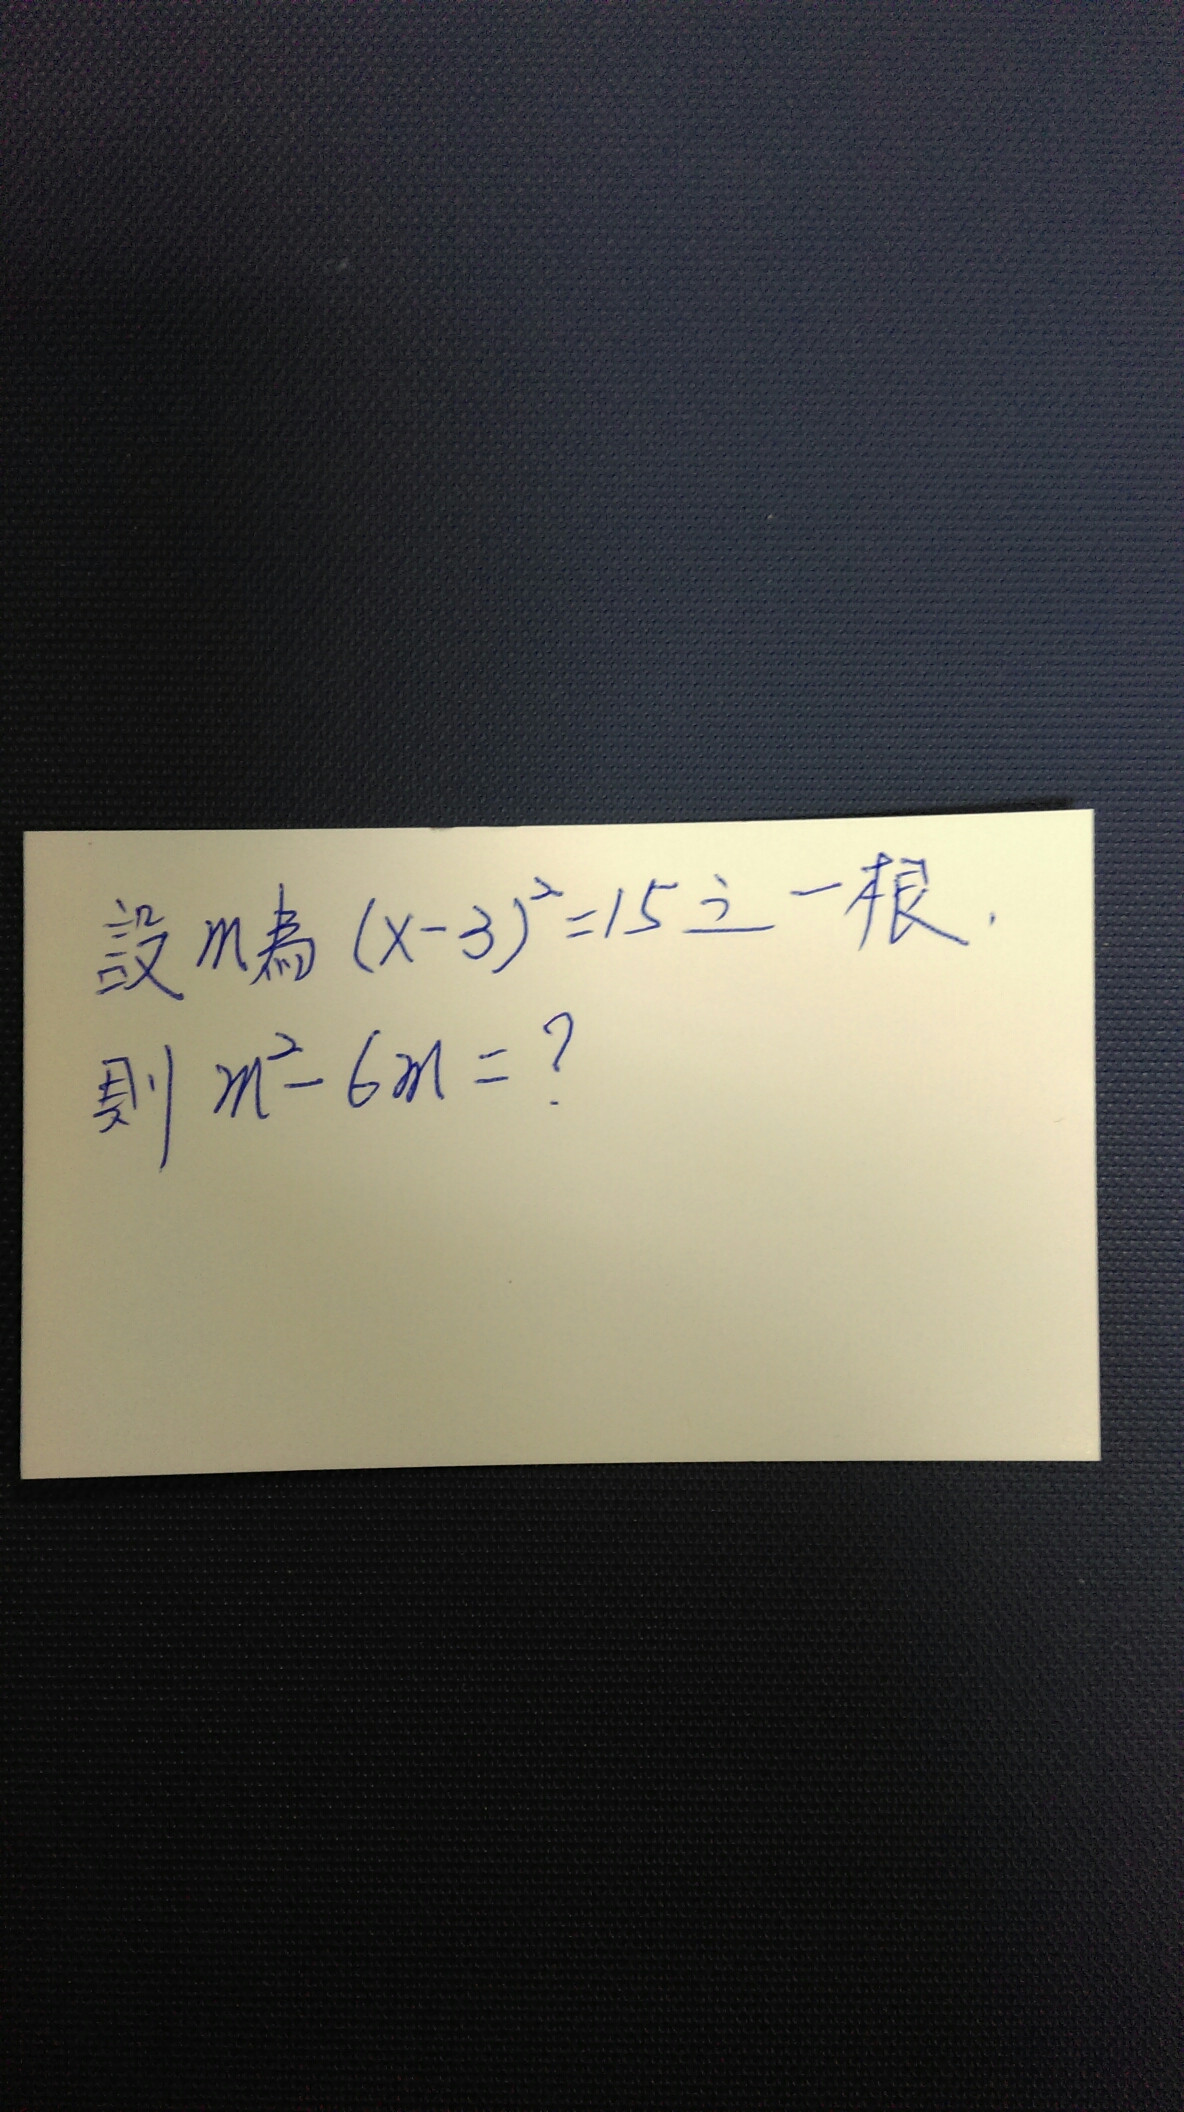 設m為(x-3)²=15之一根.
則m²-6m=?